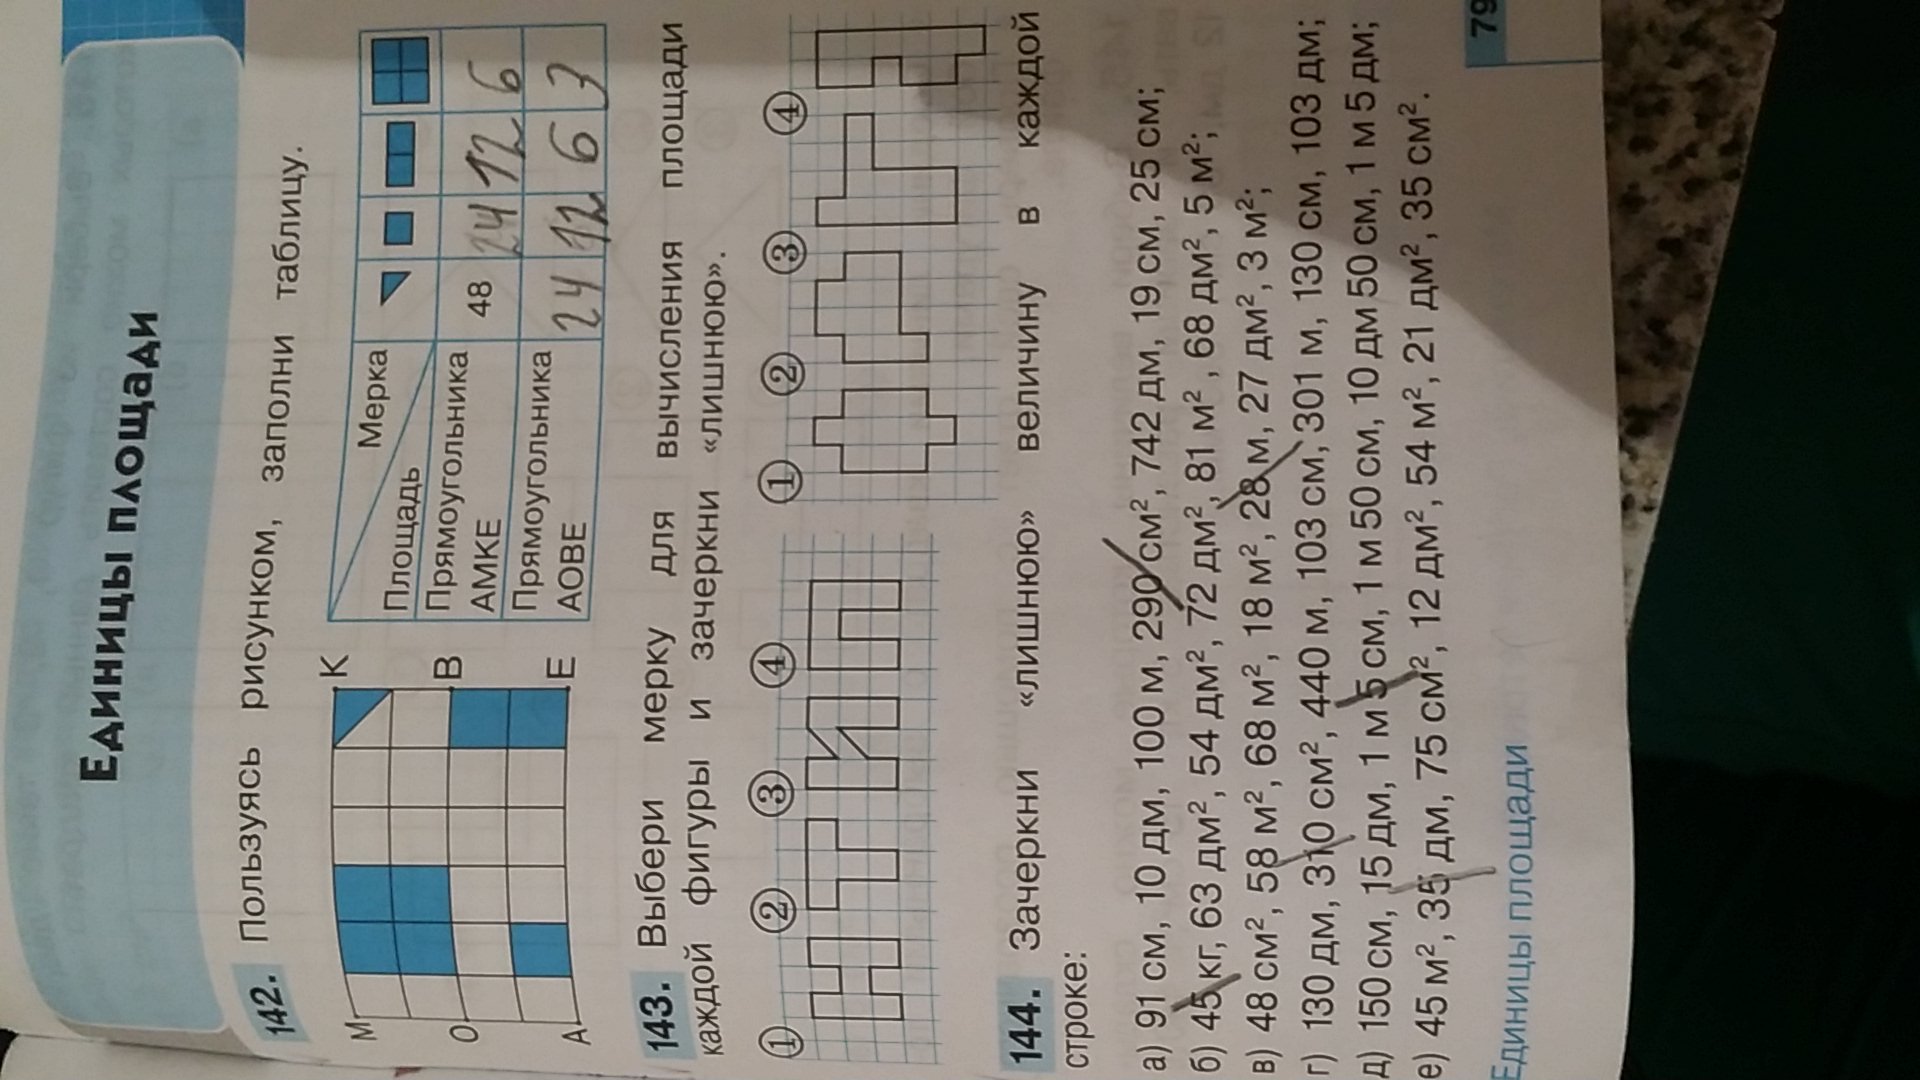 Единицы площади
142. Пользуясь рисунком, заполни таблицу.
М
К
О
В
А
Е
Мерка
Площадь
Прямоугольника АМКЕ 48 24 12 6
Прямоугольника АОВЕ 24 12 6 3
143. Выбери мерку для вычисления площади
каждой фигуры и зачеркни «лишнюю».
1 2 3 4 1 2 3 4
144. Зачеркни «лишнюю» величину в каждой
строке:
а) 91 см, 10 дм, 100 м, 290 см², 742 дм, 19 см, 25 см;
б) 45 кг, 63 дм², 54 дм², 72 дм², 81 м², 68 дм², 5 м²;
в) 48 см², 58 м², 68 м², 18 м², 28 м, 27 дм², 3 м²;
г) 130 дм, 310 см², 440 м, 103 см, 301 м, 130 см, 103 дм;
д) 150 см, 15 дм, 1 м 5 см, 1 м 50 см, 10 дм 50 см, 1 м 5 дм;
е) 45 м², 35 дм, 75 см², 12 дм², 54 м², 21 дм², 35 см².
Единицы площади
79